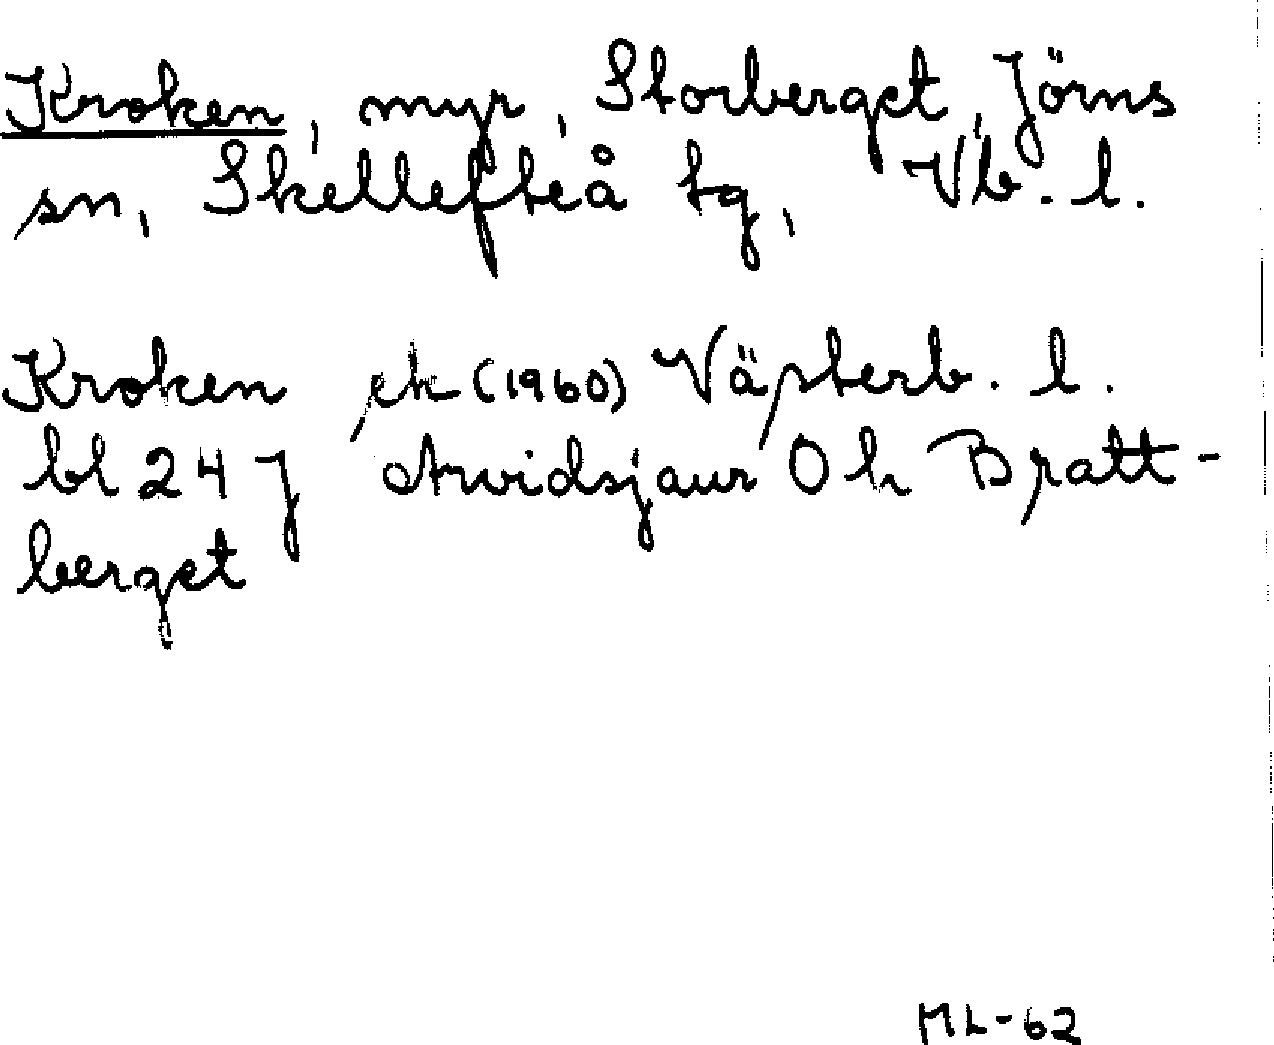 Kroken, myr, Storberget, Jörns
sn, Skellefteå tg, Vb. l.
Kroken ek (1960) Västerb. l.
bl 24 J Arvidsjaur O h Bratt-
berget
ML-62